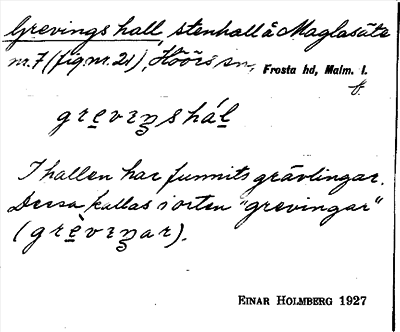 Grevings hall, stenhall å Maglasäte
nr. 7 (fig nr. 21), Höörs sn, Frosta hd, Malm. l.
f.
grevıŋshál
I hallen har funnits grävlingar.
Dessa kallas i orten "grevingar"
(grèvıŋar).
EINAR HOLMBERG 1927